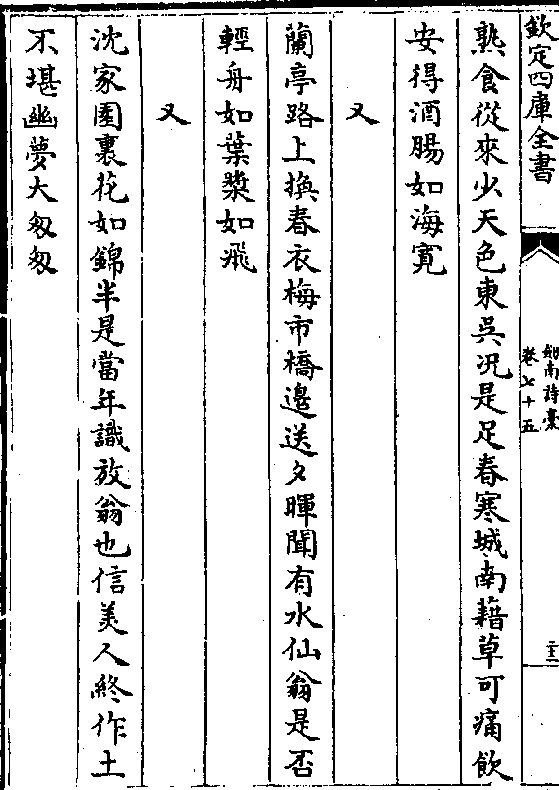 欽定四庫全書
劍南詩稾
卷七十五
二十三
熟食從來少天色東吳況是足春寒城南藉草可痛飲
安得酒腸如海寛
又
蘭亭路上換春衣梅市橋邉送夕暉聞有水仙翁是否
輕舟如葉槳如飛
又
沈家園裏花如錦半是當年識放翁也信美人終作土
不堪幽夢大匆匆